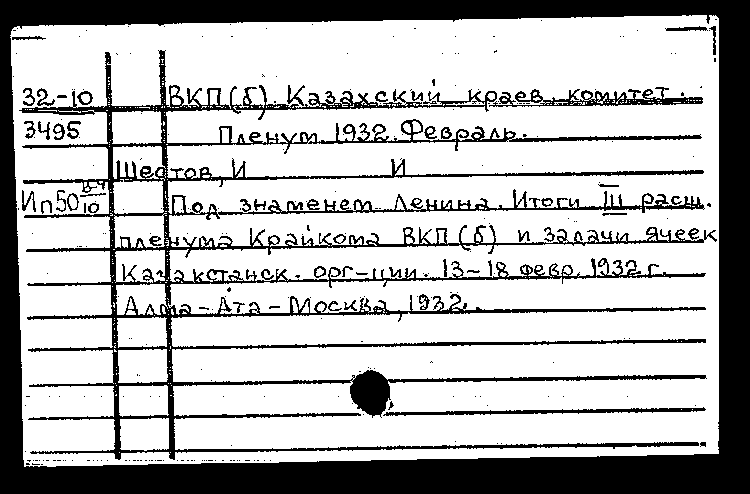 32-10 ВКП(б). Казахский краев. комитет.
3495 Пленум 1932. Февраль.
Шестов, И И
Ип50 10 Под знаменем Ленина. Итоги III расш.
пленума Крайкома ВКП(б) и задачи ячеек
Казакстанск. орг-ции. 13-18 февр. 1932 г.
Алма-Ата - Москва, 1932.